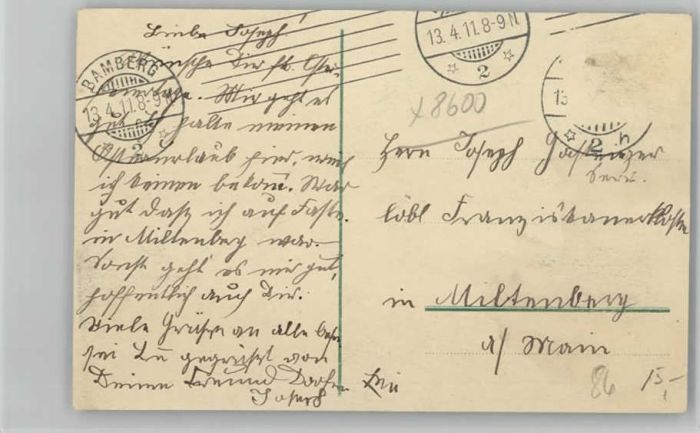 Liebe Joseph
Wünsche Dir fr. Oster-
feiertage. Mir geht es
gut. Ich halte meinen
Osterurlaub hier, weil
ich keinen bekom. War
gut dasz ich auf Fastn.
in Miltenberg war.
Sonst geht es mir gut,
hoffentlich auch Dir.
Viele Grüsse an alle
sei Du gegrüsst von
Deinem Freund
Joseph
BAMBERG
13.4.11.8-9N.
2
13.4.11.8-9N
2
13
2
x 8600
Herrn Joseph
löbl. Franziskanerkloster
in Miltenberg
a/ Main
86 15,-